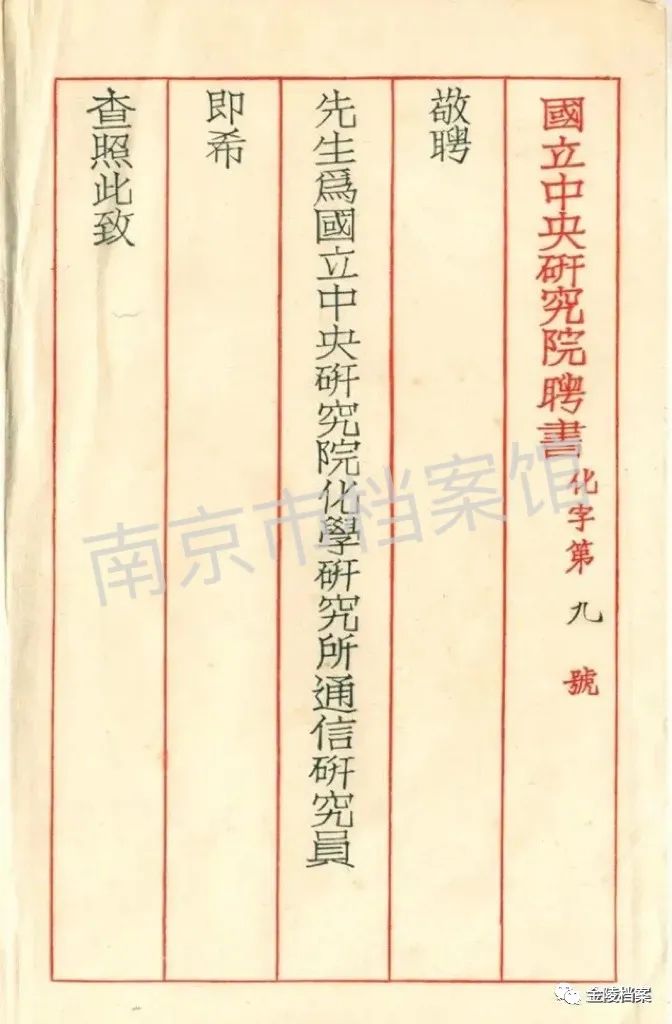 國立中央研究院聘書 化字第九號
敬聘
先生爲國立中央研究院化學研究所通信研究員
即希
查照此致
南京市档案馆
金陵档案